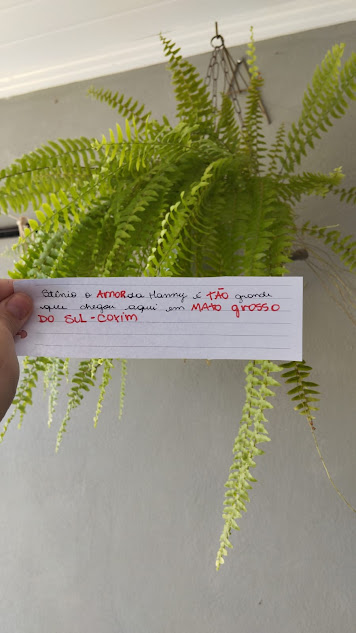 Stênio o AMOR da Hanny é TÃO grande
que chegou aqui em MATO grosso
DO SUL - COXIM